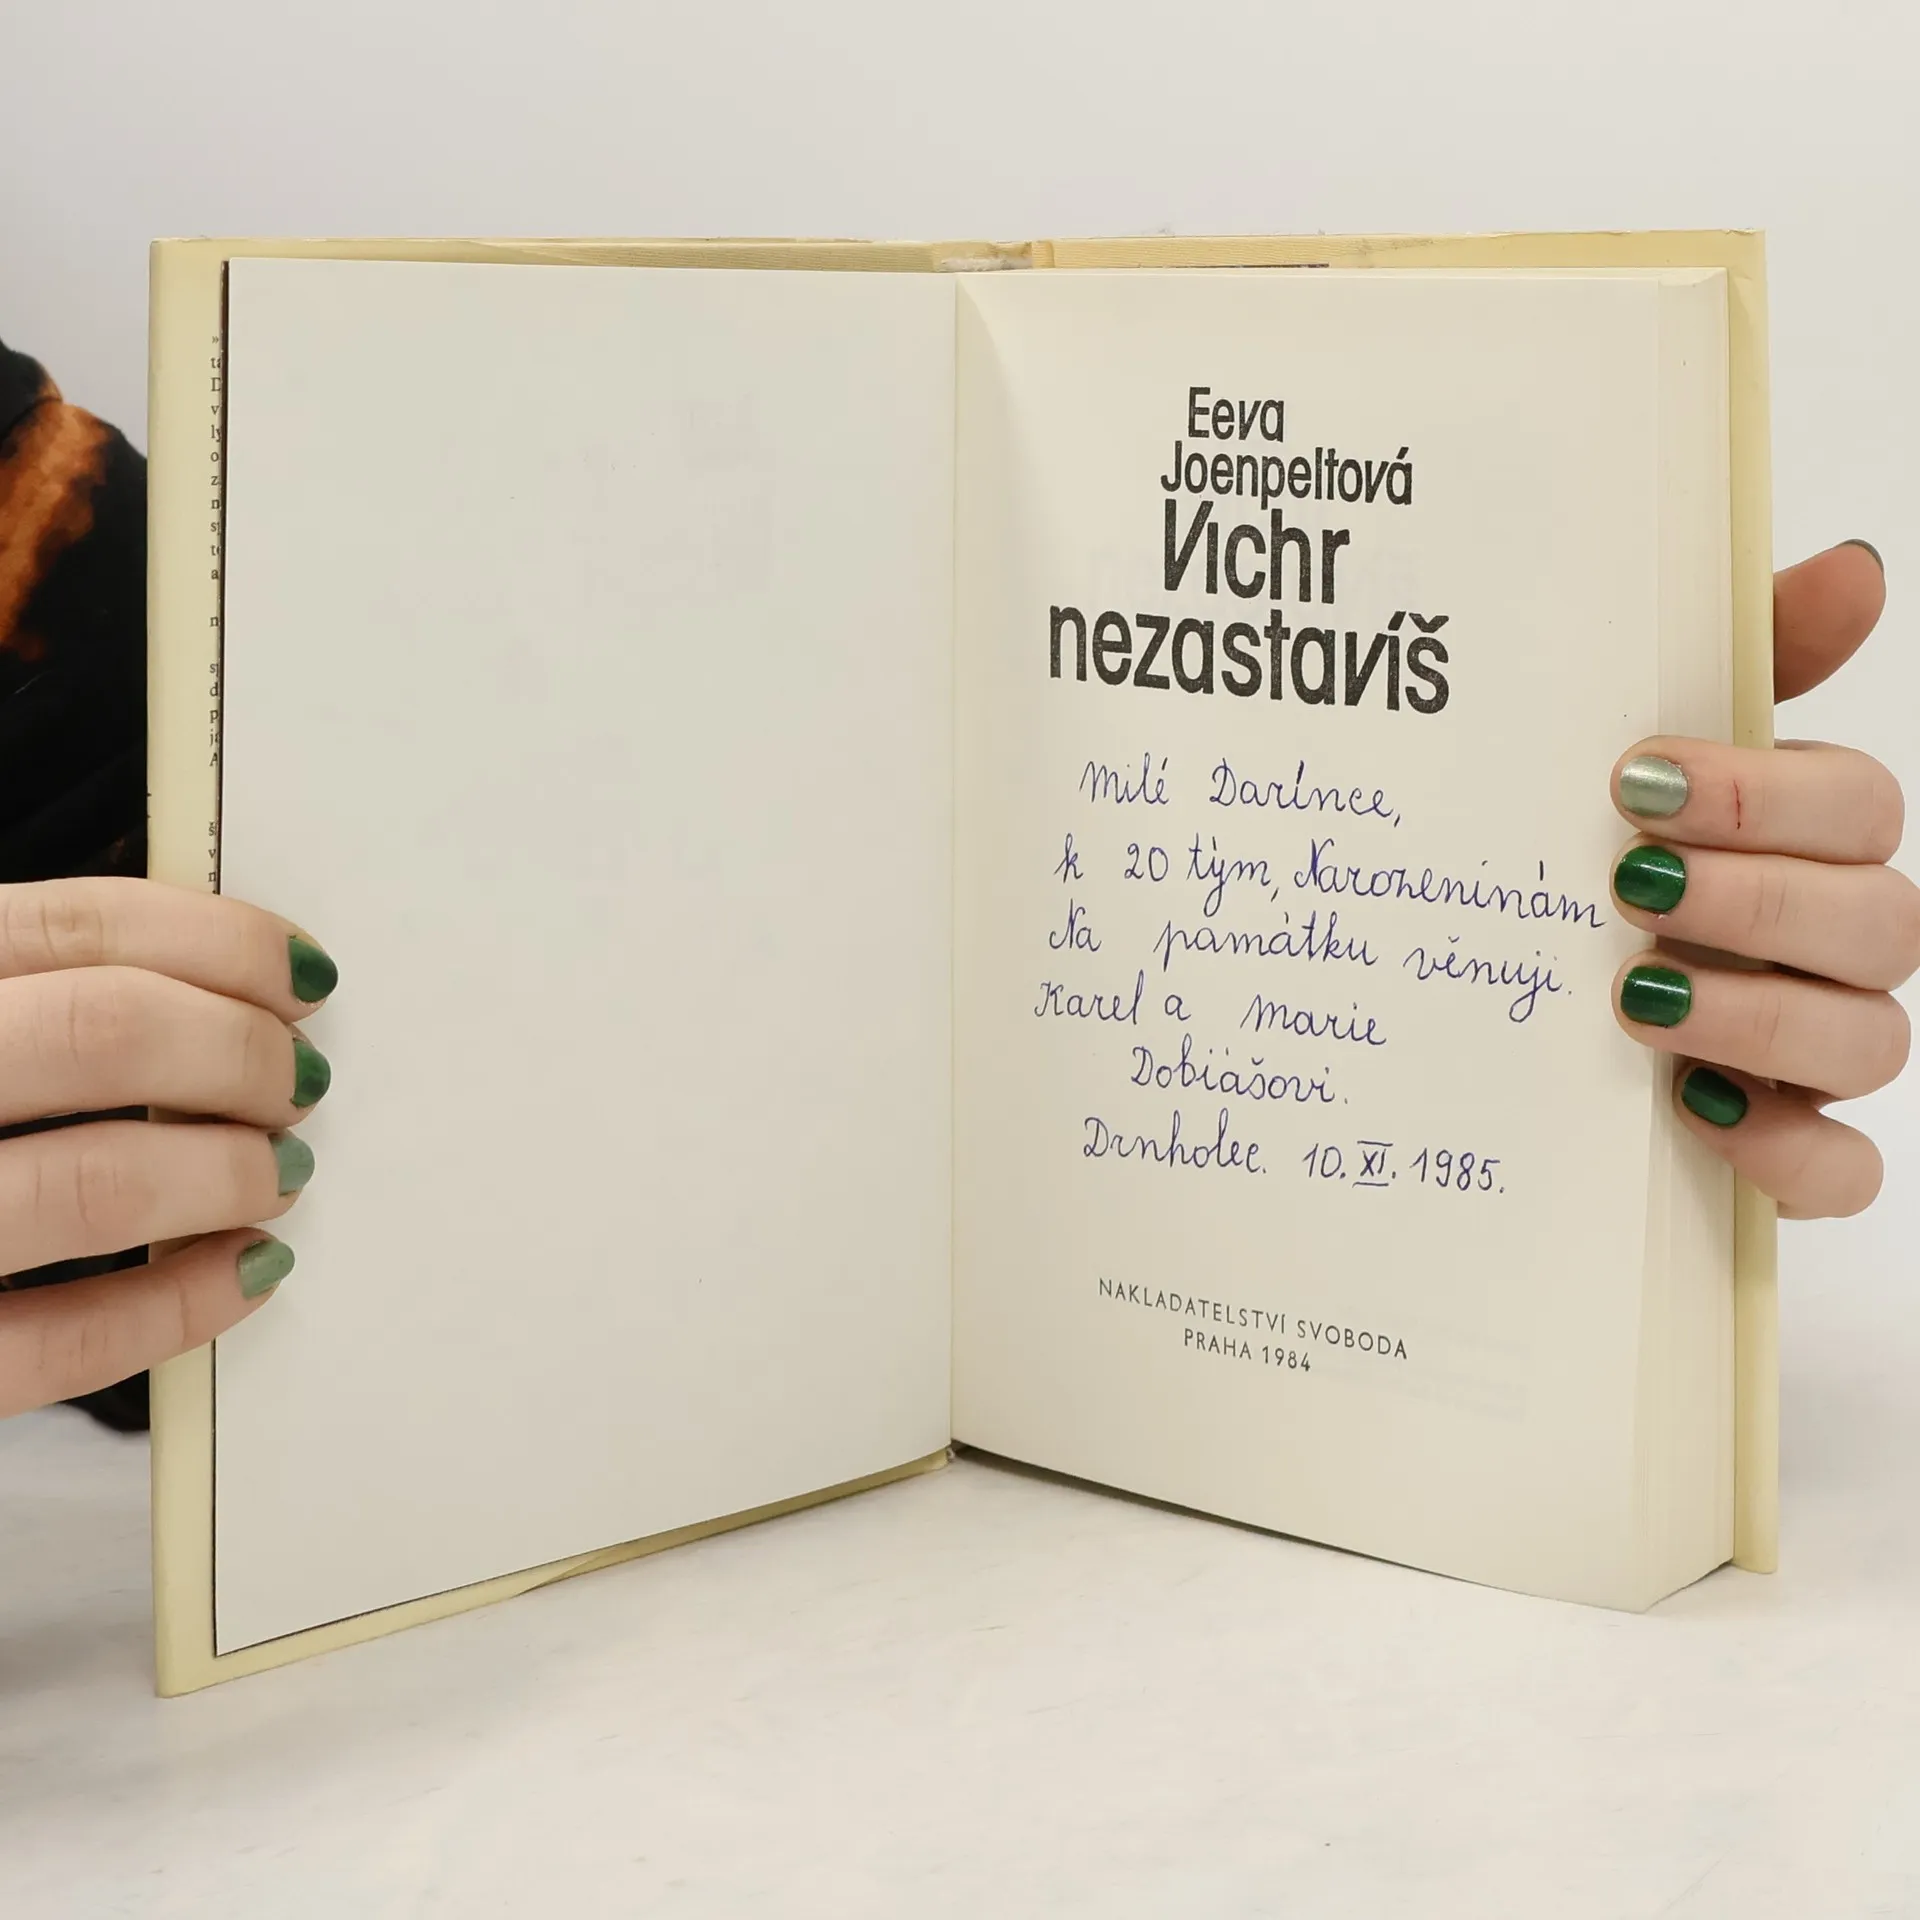 Eeva
Joenpeltová
Vichr
nezastavíš
Milé Darínce,
k 20 tým, Narozeninám
Na památku věnuji.
Karel a Marie
Dobiášovi.
Drnholec. 10. XI. 1985.
NAKLADATELSTVÍ SVOBODA
PRAHA 1984